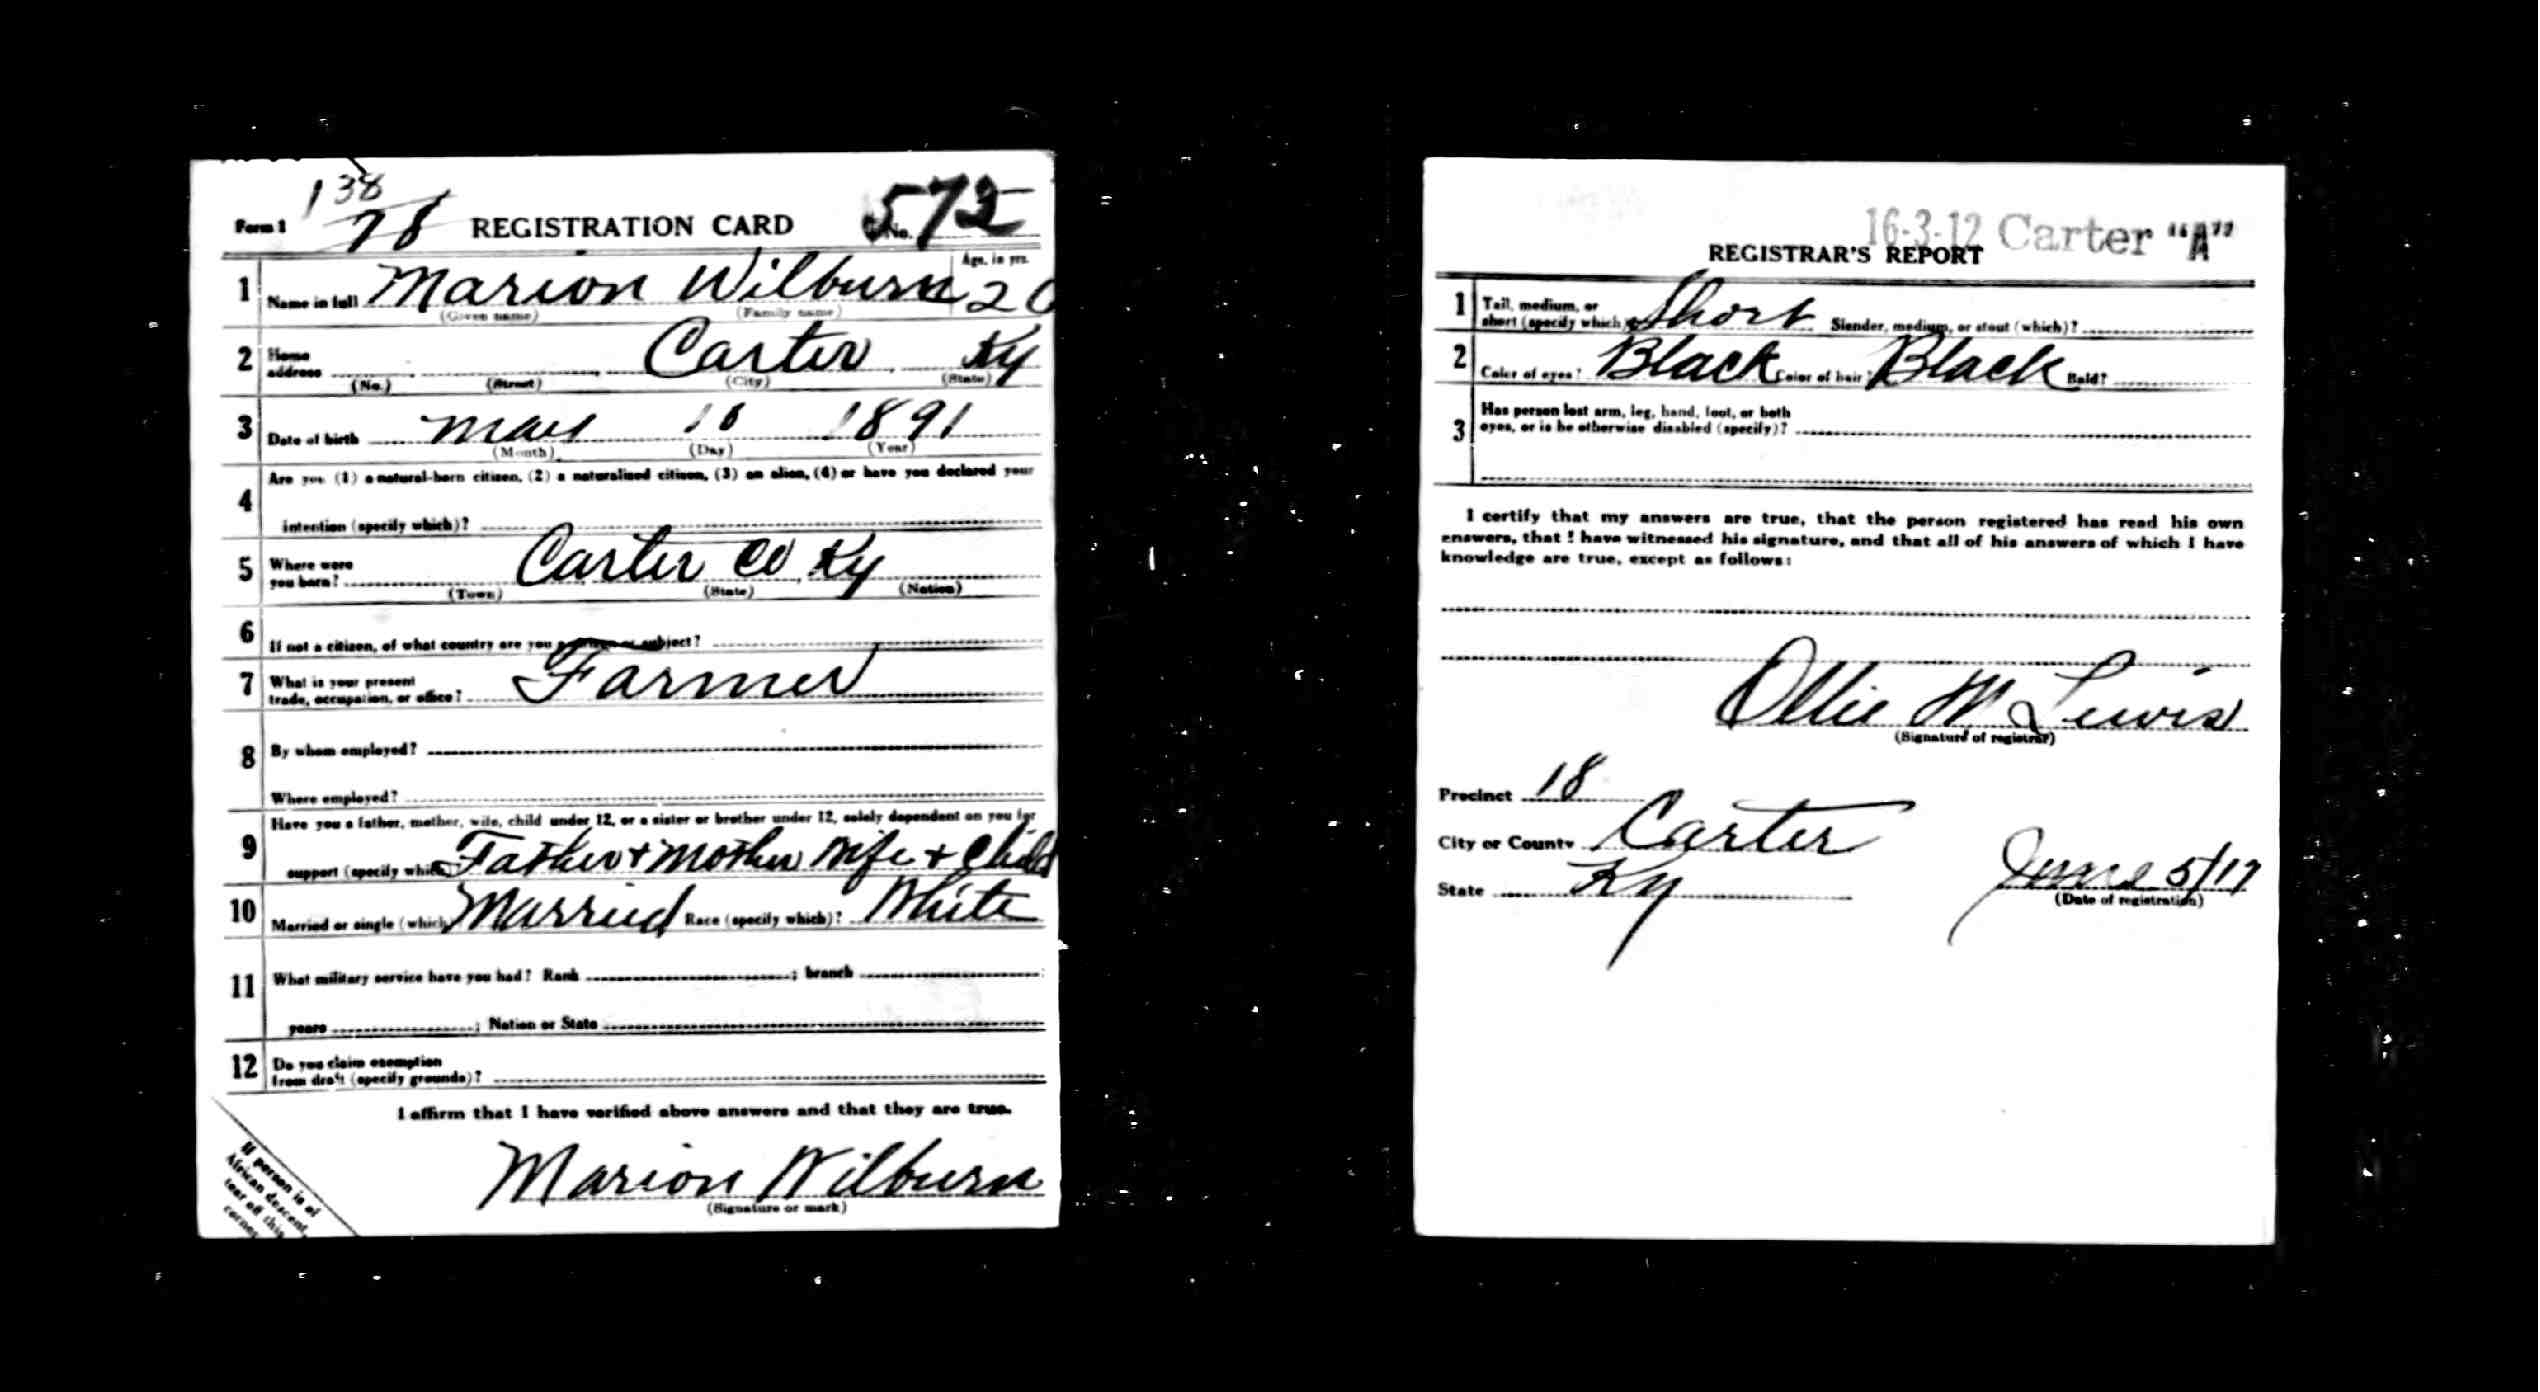 138
Form 1 78 REGISTRATION CARD No. 572
1 Name in full Marion Wilburn Age, in yrs. 26
(Given name) (Family name)
2 Home address Carter Ky
(No.) (Street) (City) (State)
3 Date of birth May 18 1891
(Month) (Day) (Year)
4 Are you (1) a natural-born citizen, (2) a naturalized citizen, (3) an alien, (4) or have you declared your
intention (specify which)?
5 Where were you born? Carter Co Ky
(Town) (State) (Nation)
6 If not a citizen, of what country are you a citizen or subject?
7 What is your present trade, occupation, or office? Farmer
8 By whom employed?
Where employed?
9 Have you a father, mother, wife, child under 12, or a sister or brother under 12, solely dependent on you for
support (specify which)? Father + Mother Wife + Child
10 Married or single (which)? Married Race (specify which)? White
11 What military service have you had? Rank ; branch
years ; Nation or State
12 Do you claim exemption from draft (specify grounds)?
I affirm that I have verified above answers and that they are true.
Marion Wilburn
(Signature or mark)
If person is of
African descent,
tear off this
corner
16-3-12 Carter "A"
REGISTRAR'S REPORT
1 Tall, medium, or short (specify which)? Short Slender, medium, or stout (which)?
2 Color of eyes? Black Color of hair? Black Bald?
3 Has person lost arm, leg, hand, foot, or both
eyes, or is he otherwise disabled (specify)?
I certify that my answers are true, that the person registered has read his own
answers, that I have witnessed his signature, and that all of his answers of which I have
knowledge are true, except as follows:
Ollie M Lewis
(Signature of registrar)
Precinct 18
City or County Carter
State Ky June 5/17
(Date of registration)